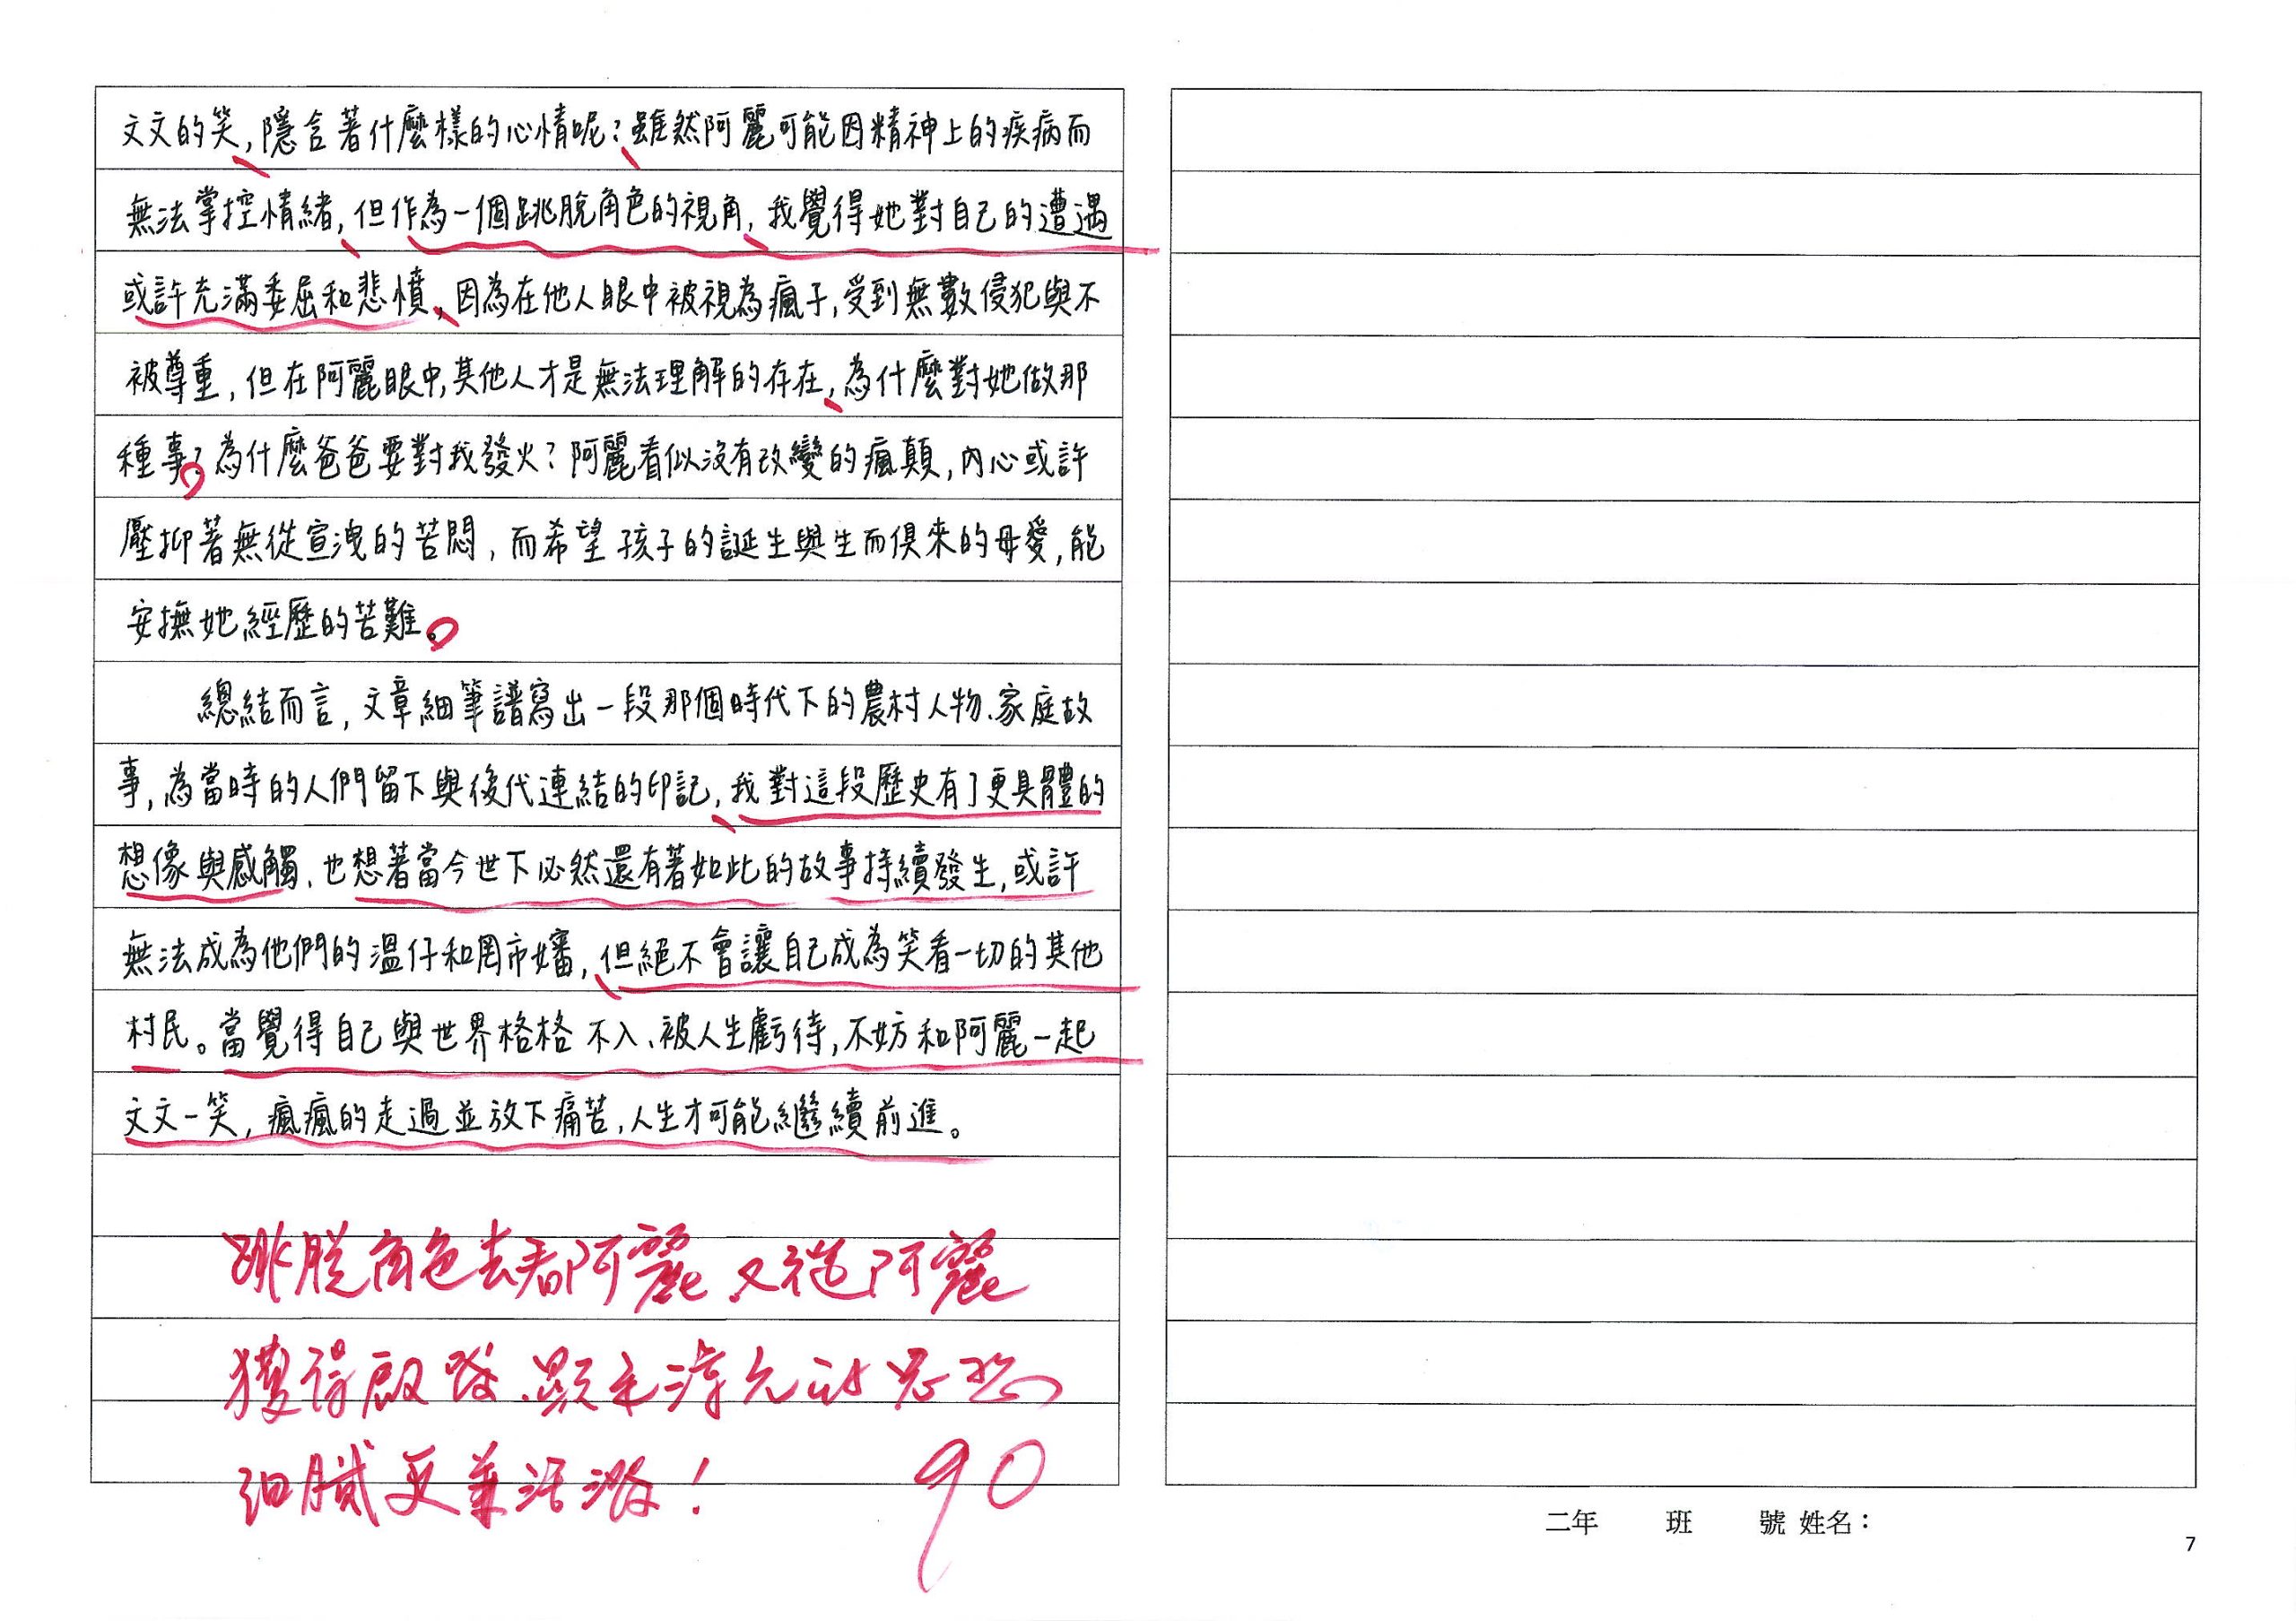 文文的笑,隱含著什麼樣的心情呢?雖然阿麗可能因精神上的疾病而
無法掌控情緒,但作為一個跳脫角色的視角,我覺得她對自己的遭遇
或許充滿委屈和悲憤,因為在他人眼中被視為瘋子,受到無數侵犯與不
被尊重,但在阿麗眼中,其他人才是無法理解的存在,為什麼對她做那
種事?為什麼爸爸要對我發火?阿麗看似沒有改變的瘋顛,內心或許
壓抑著無從宣洩的苦悶,而希望孩子的誕生與生而俱來的母愛,能
安撫她經歷的苦難。
總結而言,文章細筆譜寫出一段那個時代下的農村人物、家庭故
事,為當時的人們留下與後代連結的印記,我對這段歷史有了更具體的
想像與感觸、也想著當今世下必然還有著如此的故事持續發生,或許
無法成為他們的溫仔和罔市嬸,但絕不會讓自己成為笑看一切的其他
村民。當覺得自己與世界格格不入、被人生虧待,不妨和阿麗一起
文文一笑,瘋瘋的走過並放下痛苦,人生才可能繼續前進。
跳脫角色去看阿麗,又從阿麗
獲得啟發,顯毛淳允的思想
細膩更兼活潑!
90
二年 班 號 姓名:
7